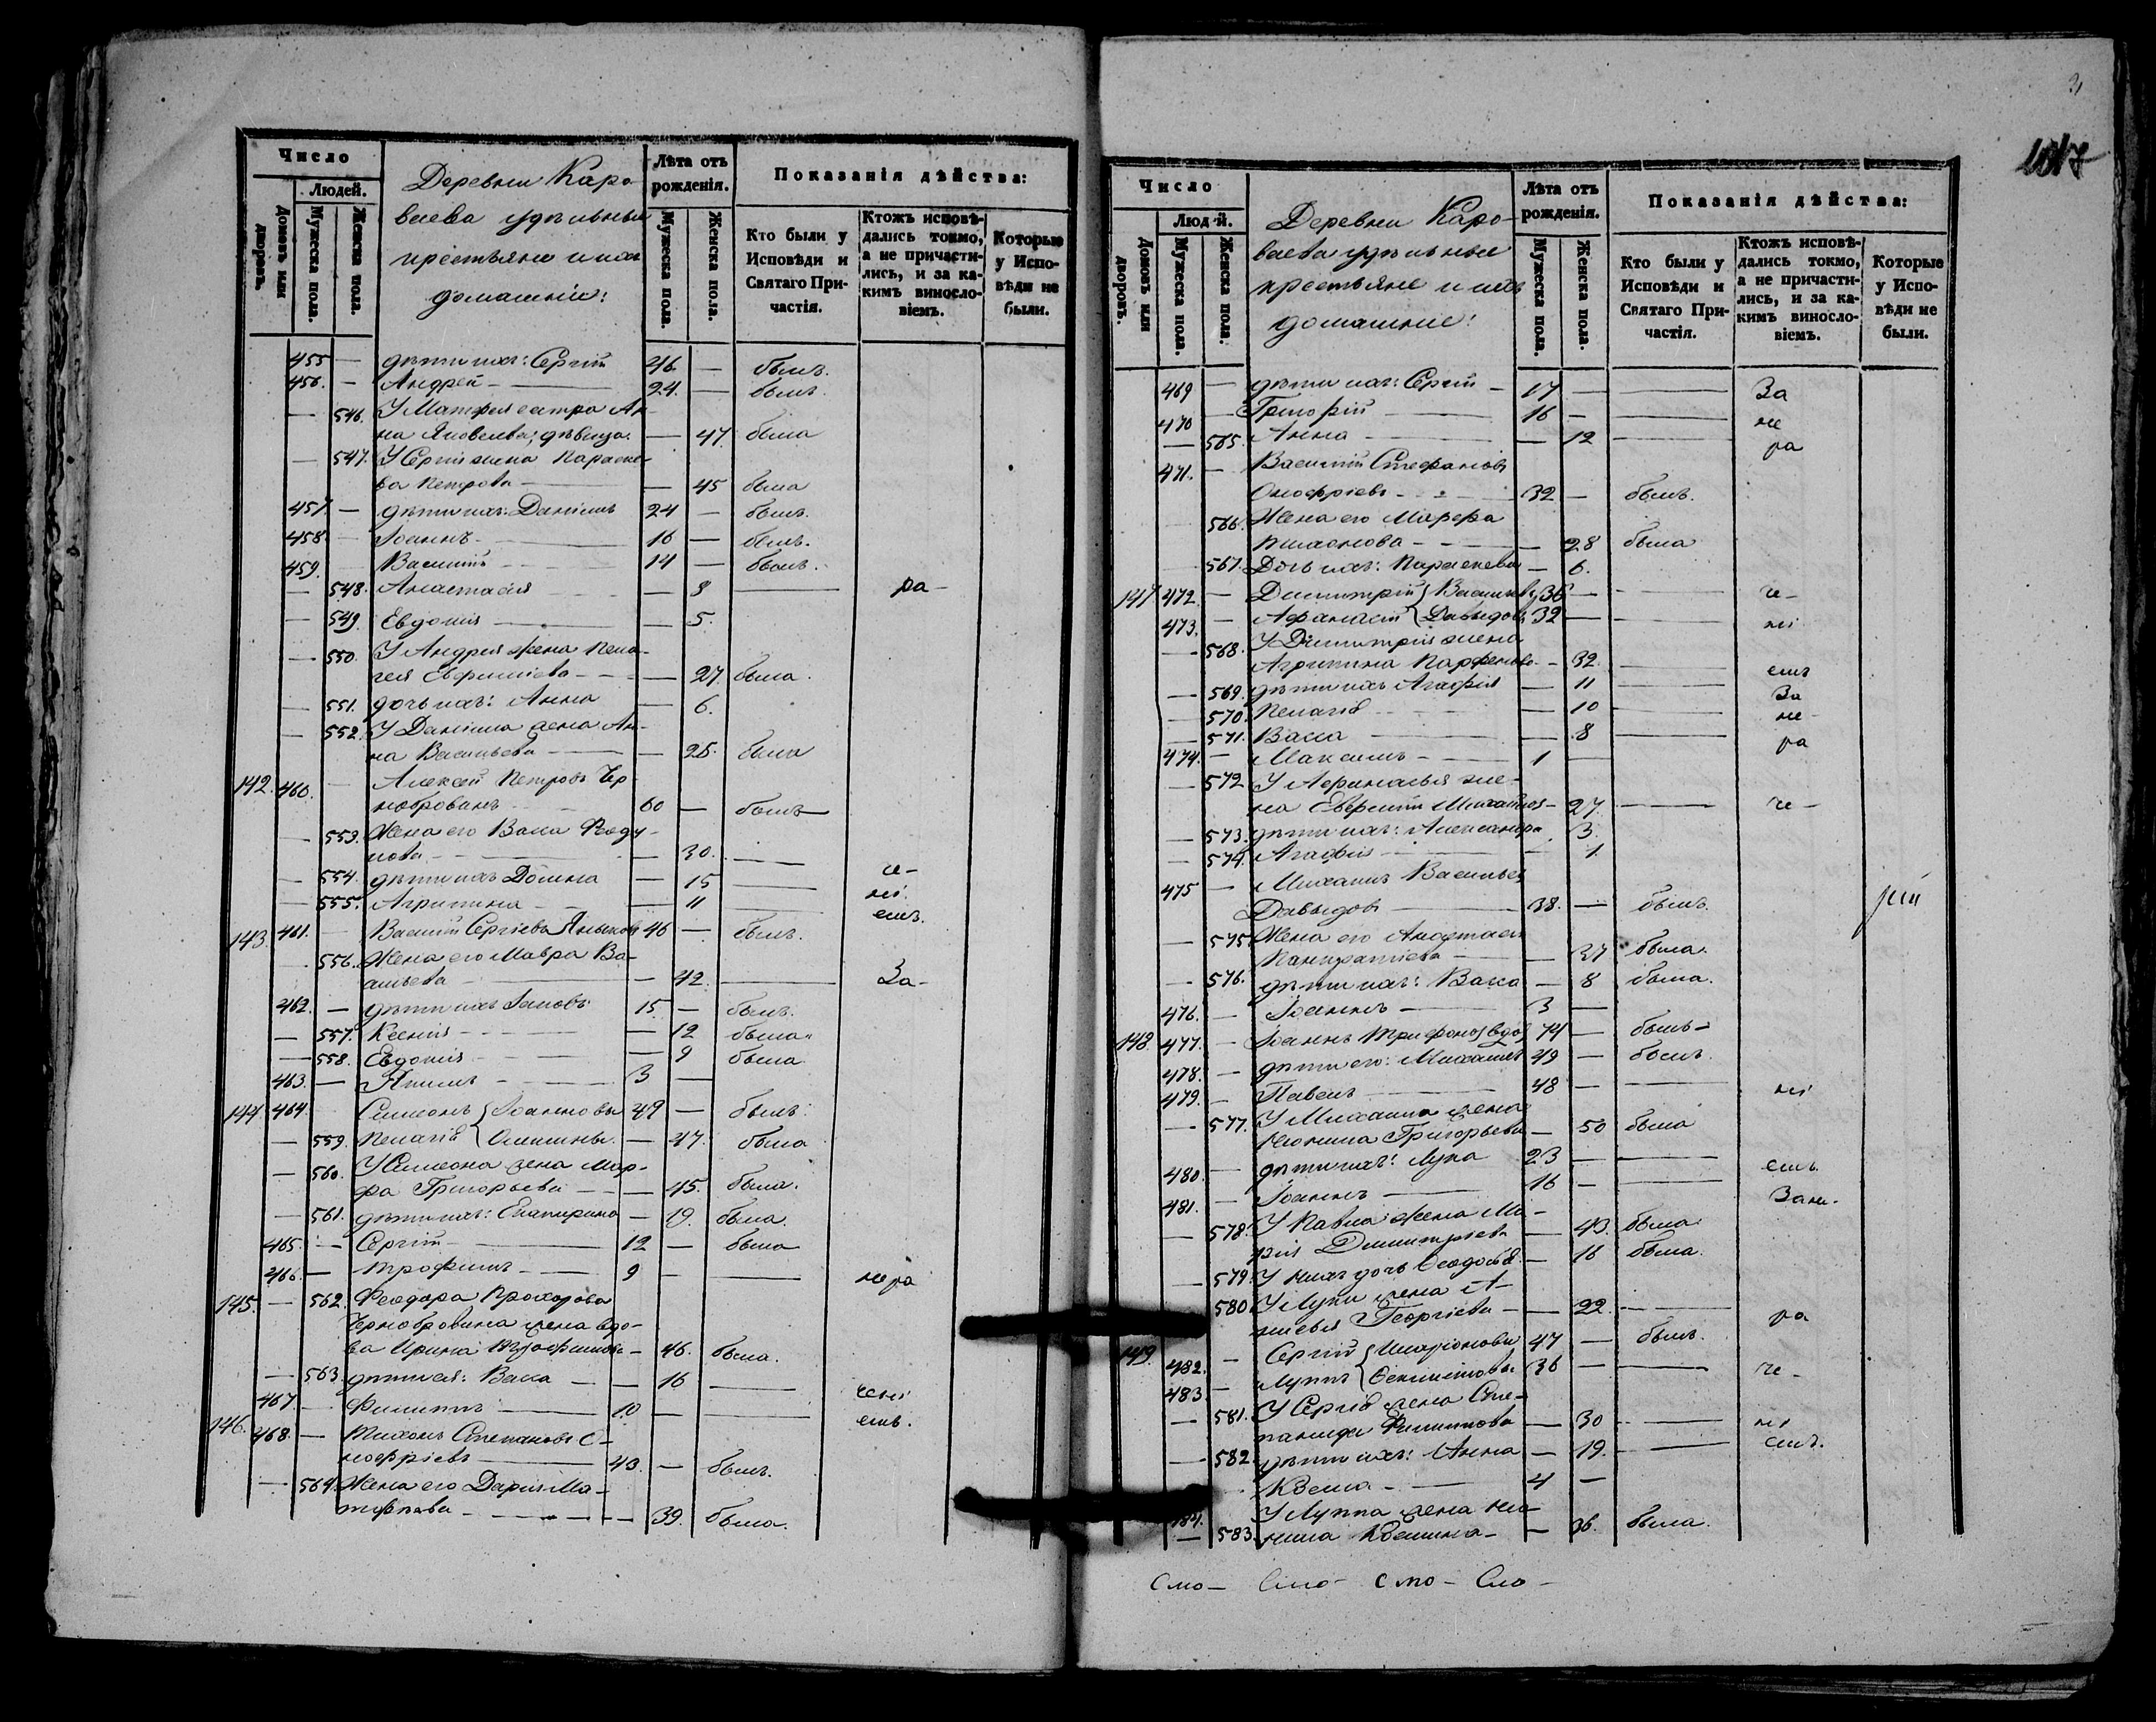 Число
Людей.
Домовъ или дворовъ.
Мужеска пола.
Женска пола.
Деревни Каро-
ваева удѣльные
крестьяне и ихъ
домашніе:
Лѣта отъ рожденія.
Мужеска пола.
Женска пола.
Показанія дѣйства:
Кто были у Исповѣди и Святаго Причастія.
Ктожъ исповѣдались токмо, а не причастились, и за какимъ винословіемъ.
Которые у Исповѣди не были.
455 — дѣти ихъ: Сергій 46 — былъ.
456. — Андрей — 24. — былъ.
— 546. У Матфея сестра Ан-
на Яковлева, дѣвица. — 47 была
— 547. У Сергія жена Параске-
ва Петрова — 45 была
457 — дѣти ихъ: Даніилъ 24 — былъ.
458 — Іоаннъ — 16 — былъ.
459. Василій — 14 — былъ.
— 548. Анастасія — 8 — ра-
— 549. Евдокія — 5.
— 550. У Андрея жена Пела-
гея — 27. была.
— 551. дочь ихъ: Анна — 6.
— 552. У Даніила жена Ан-
на Васильева — 25. была
142. 460. — Алексѣй Петровъ Чер-
нобровинъ 60 — былъ
— 553. Жена его Васса Ѳеду-
лова — 30. —
— 554. дѣти ихъ Домна — 15 — че-
— 555. Агрипина — 11 — ні
143. 461. — Василій Сергіевъ 46 — былъ. емъ.
556. Жена его Мавра Ва-
сильева — 42. — За-
462. — дѣти ихъ Іаковъ 15. — былъ.
— 557. Ксенія — 12 была
— 558. Евдокія — 9 была
463. — 3 —
144 464. Симеонъ { Іоанновы 49 — былъ.
— 559. Пелагія — 47. была
— 560. У Симеона жена Мар-
фа Григорьева — 45. была.
— 561. дѣти ихъ: Екатерина — 19. была.
465. — Сергій — 12 — была
466. — Трофимъ — 9 — — не ра
145. — 562. Ѳеодора Прохорова
Чернобровина жена вдо-
ва Ирина Трофимова — 46. была.
— 563. дѣти ея: Васса — 16 — чені
467. — Филиппъ — 10 — — емъ.
146. 468. — Тихонъ Степановъ О-
нофріевъ — 43. — былъ.
— 564. Жена его Дарія Ма-
тфѣева — 39. была.
3
Число
Людей.
Домовъ или дворовъ.
Мужеска пола.
Женска пола.
Деревни Каро-
ваева удѣльные
крестьяне и ихъ
домашніе:
Лѣта отъ рожденія.
Мужеска пола.
Женска пола.
Показанія дѣйства:
Кто были у Исповѣди и Святаго Причастія.
Ктожъ исповѣдались токмо, а не причастились, и за какимъ винословіемъ.
Которые у Исповѣди не были.
469 — дѣти ихъ: Сергій — 17 — — За
470 — Григорій — 16 — — не
— 565. Анна — 12 — ра
471. — Василій Стефановъ
Онофріевъ — 32 — былъ.
566. Жена его Марфа
Тихонова — 28 была
567. Дочь ихъ: Параскева — 6.
147 472. — Димитрій { Васильевы 36 — — че-
473. — Афанасій { Давыдовы 32 — — ні
— 568. У Димитрія жена
Агрипина Парфенова — 32. — емъ
— 569. дѣти ихъ Агафія — 11 — За
— 570. Пелагія — 10 — не
— 571. Васса — 8 — ра
474. — Максимъ — 1 —
— 572 У Афанасья же-
на — 27. — че-
— 573. дѣти ихъ: Александра 3.
— 574. Агафія — 1.
475 — Михаилъ Васильевъ
Давыдовъ — 38. — былъ.
— 575. Жена его Анастасія
Панкратіева — 37 была.
— 576. дѣти ихъ: Васса — 8 была.
476. — Іоаннъ 3 —
148. 477. — Іоаннъ Трифоновъ вдов 74 — былъ
478. — дѣти его: Михаилъ 49 — былъ.
479. — Павелъ — 48 — — ні
— 577. У Михаила жена
Григорьева — 50 была
480. — дѣти ихъ: Лука 23 — — емъ.
481. — Іоаннъ — 16 — — За не-
— 578. У Павла жена Ма-
рія Димитріева — 43. была
— 579. У нихъ дочь Ѳеодосія — 16 была.
580 У Луки жена
Георгіева — 22. — ра
149. 482. — Сергій { 47 — былъ.
483. — Луппъ { 36 — — че-
— 581. У Сергія жена Сте-
панида Филиппова — 30 — ні
— 582. дѣти ихъ: Анна — 19. — емъ.
Козма — 4 —
484. У Луппа жена
— 583. Козмина — 36. была.
Смо- Смо- Смо- Смо-